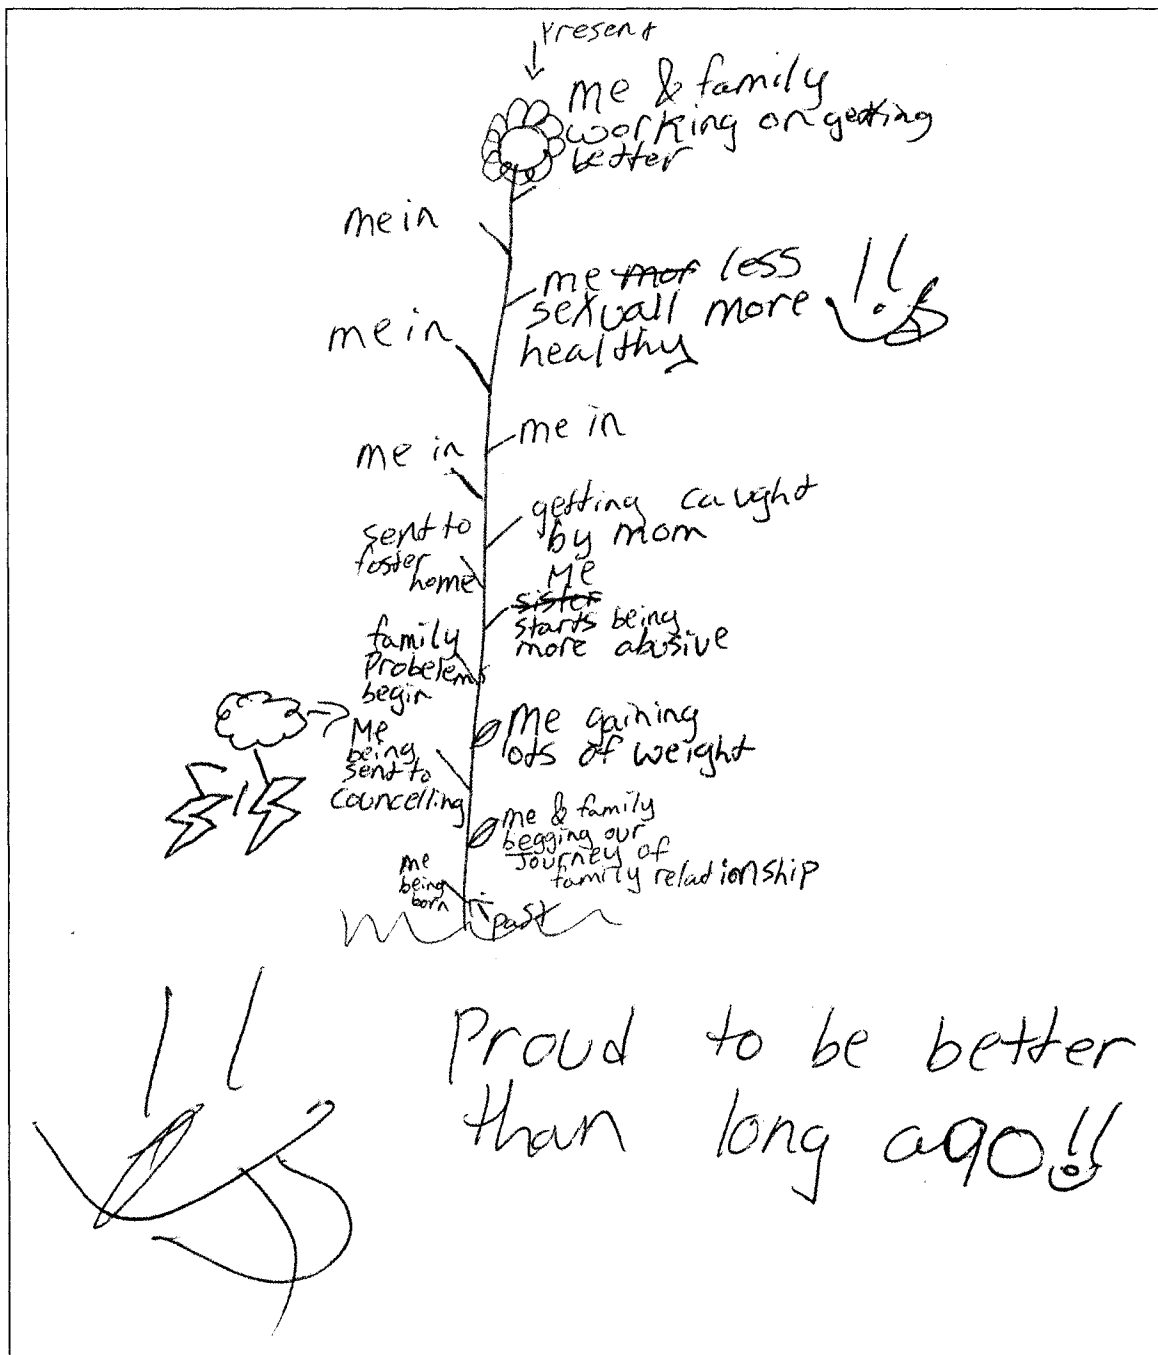 Present
me & family
working on getting
better
me in
me mor less
sexuall more
healthy
me in
me in
me in
getting caught
by mom
sent to
foster
home
Me
sister
starts being
more abusive
family
Probelems
begin
Me gaining
lots of weight
Me
being
sent to
Councelling
me & family
begging our
Journey of
family relationship
me
being
born
past
Proud to be better
than long ago!!